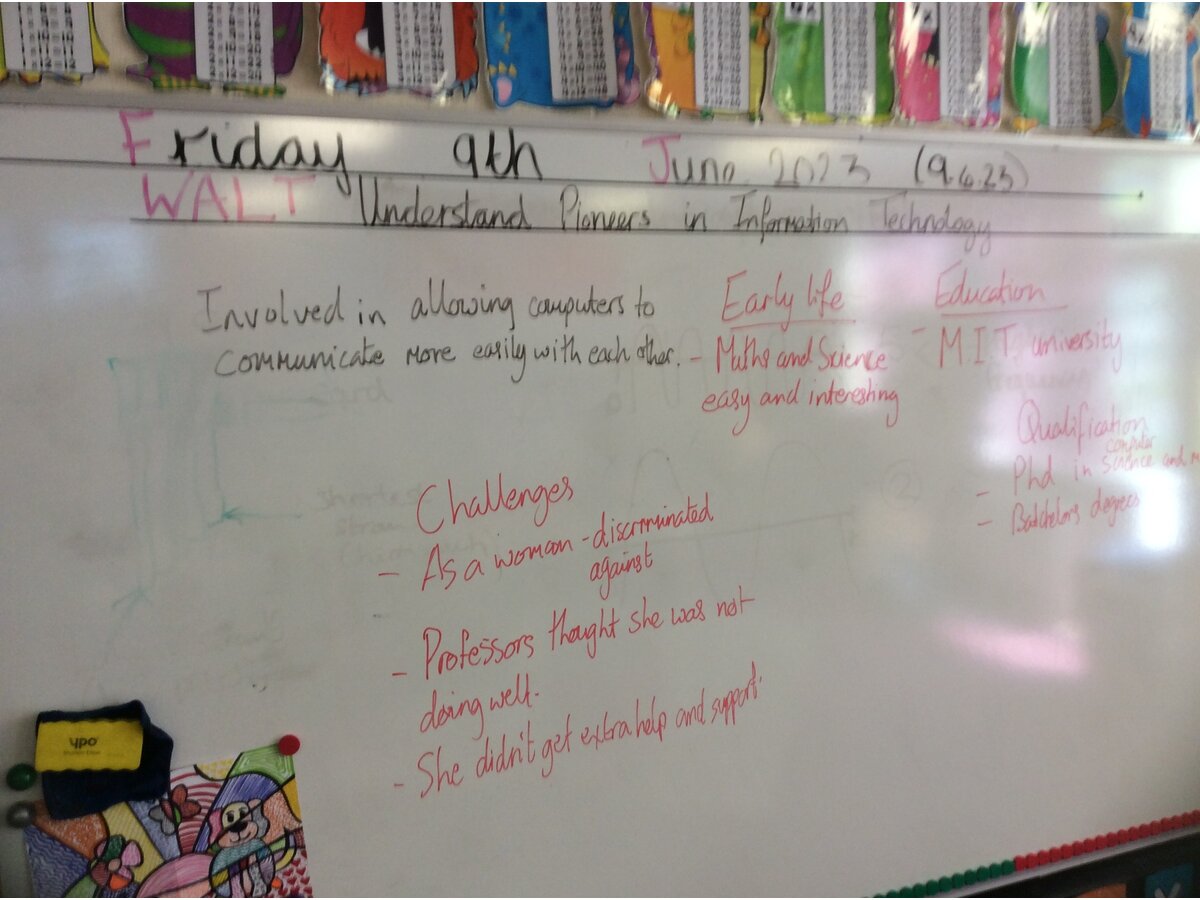 Friday 9th June 2023 (9.6.23)
WALT Understand Pioneers in Information Technology
Involved in allowing computers to
communicate more easily with each other.
Early life
- Maths and Science
easy and interesting
Education
- M.I.T. university
Qualification
computer
- Phd in science and
- Batchelors degrees
Challenges
- As a woman - discriminated
against
- Professors thought she was not
doing well.
- She didn't get extra help and support.
ypo